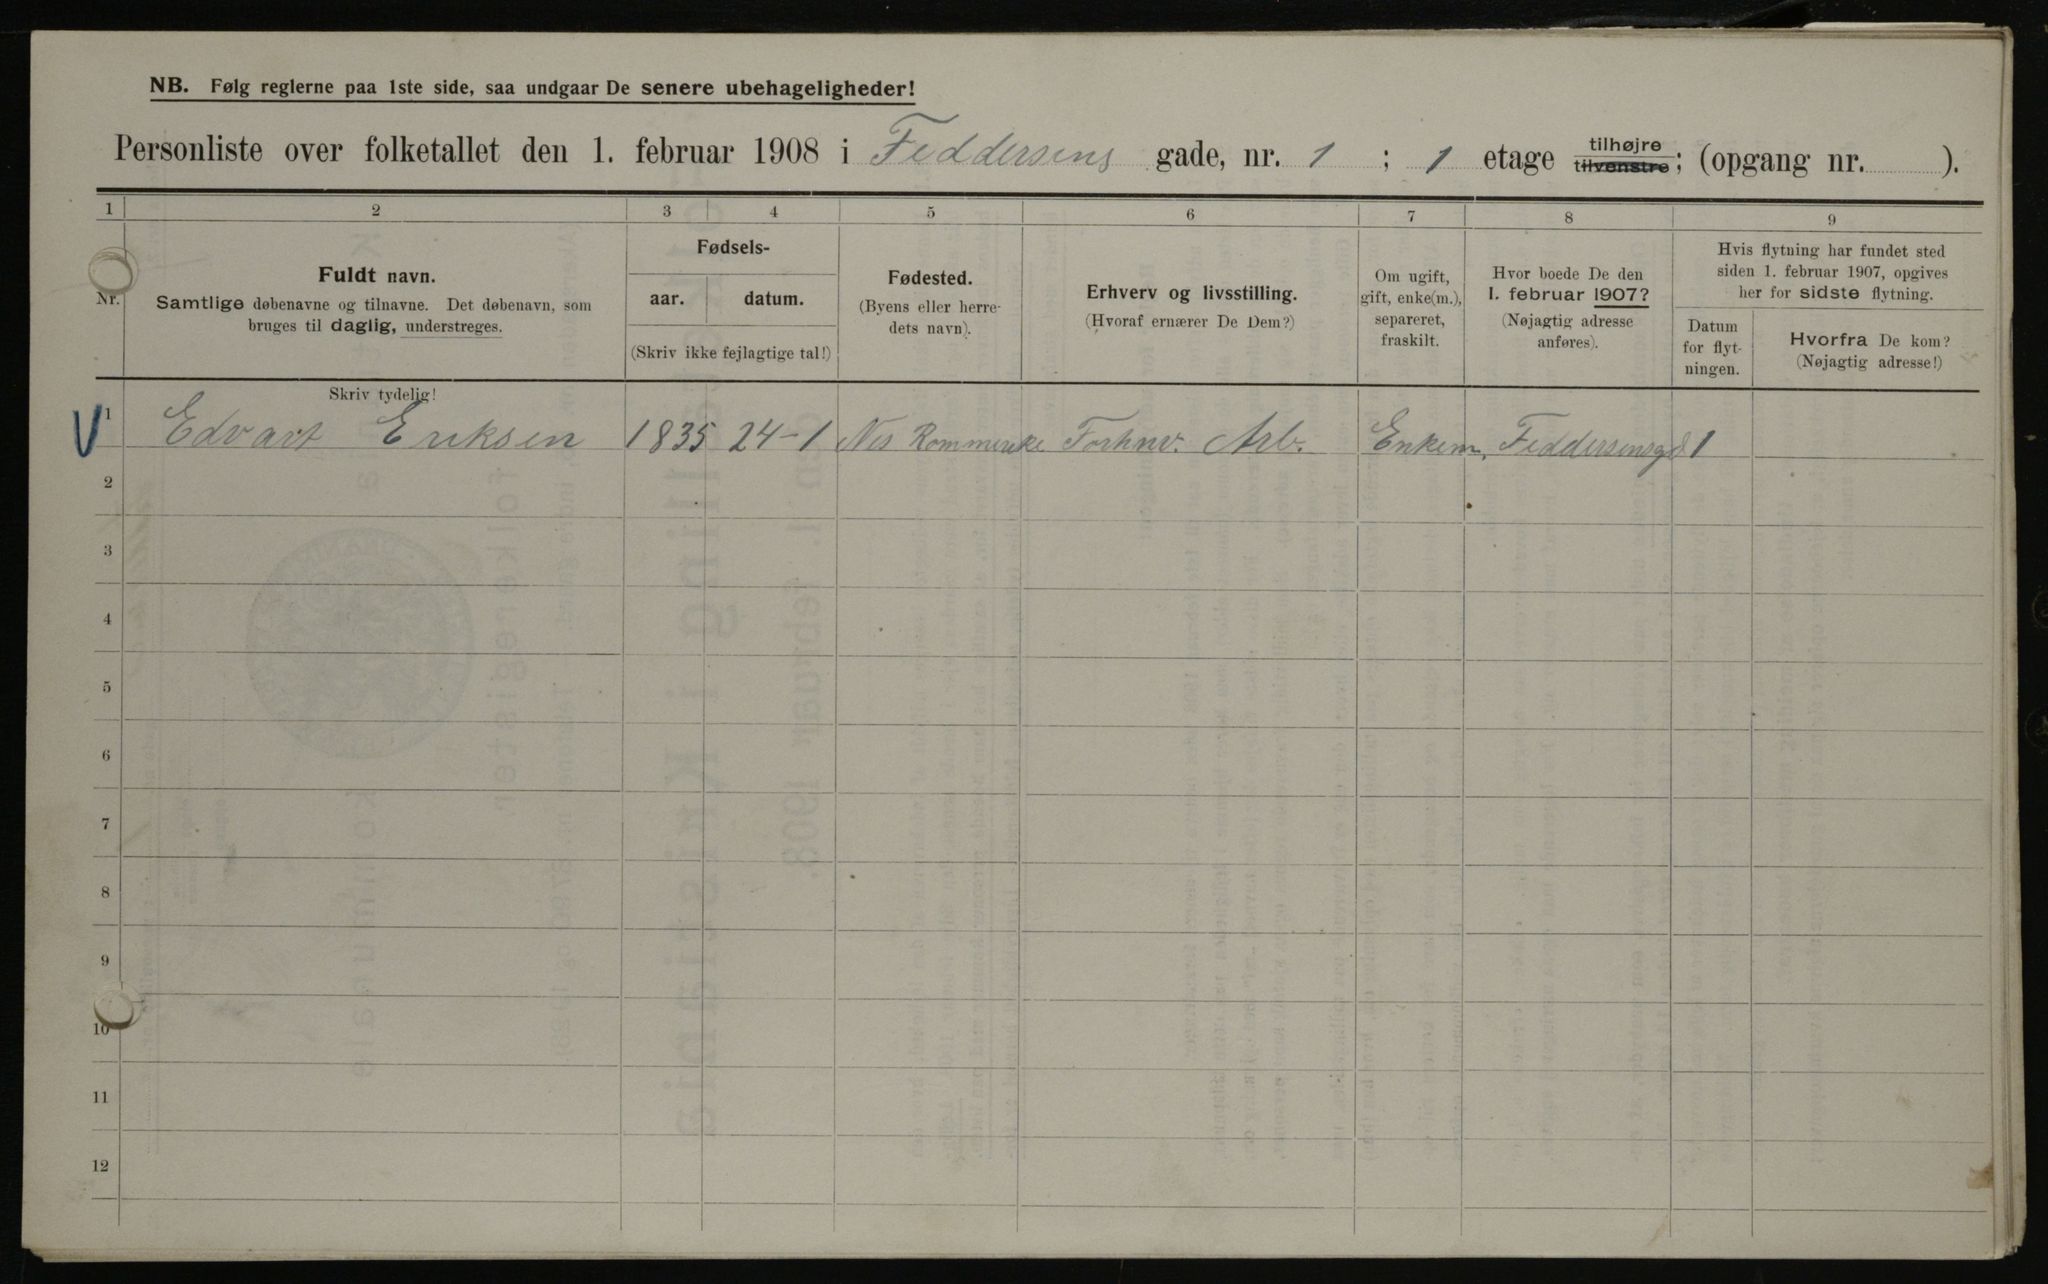 NB. Følg reglerne paa 1ste side, saa undgaar De senere ubehageligheder!
Personliste over folketallet den 1. februar 1908 i Feddersens gade, nr. 1 ; 1 etage tilhøjre tilvenstre; (opgang nr. ).
1 2 3 4 5 6 7 8 9
Nr.
Fuldt navn.
Samtlige døbenavne og tilnavne. Det døbenavn, som
bruges til daglig, understreges.
Fødsels-
aar. datum.
(Skriv ikke fejlagtige tal!)
Fødested.
(Byens eller herre-
dets navn).
Erhverv og livsstilling.
(Hvoraf ernærer De Dem?)
Om ugift,
gift, enke(m.),
separeret,
fraskilt.
Hvor boede De den
1. februar 1907?
(Nøjagtig adresse
anføres).
Hvis flytning har fundet sted
siden 1. februar 1907, opgives
her for sidste flytning.
Datum
for flyt-
ningen.
Hvorfra De kom?
(Nøjagtig adresse!)
Skriv tydelig!
1 Edvart Eriksen 1835 24-1 Nes Rommerike Forhnv. Arb. Enkem. Feddersensgd 1
2
3
4
5
6
7
8
9
10
11
12